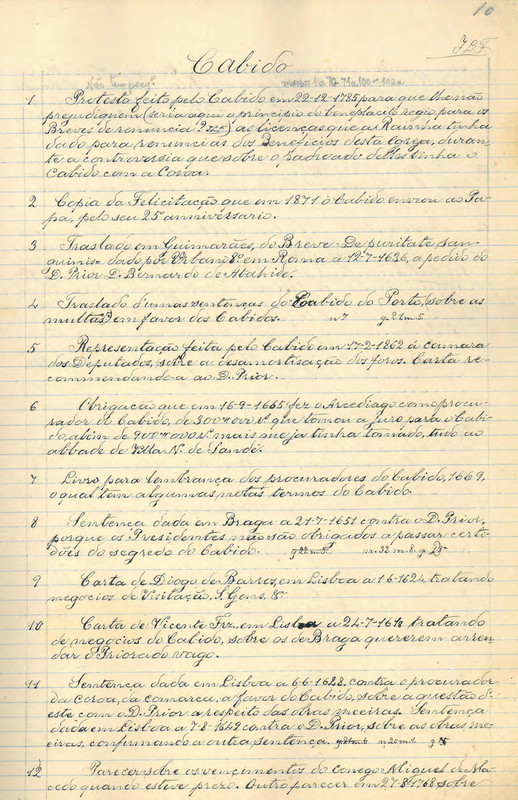 10
Cabido
1 Protesto feito pelo Cabido em 22-12-1785 para que lhe não
prejudiquem (seria aqui o principio do beneplacito regio para os
Breves de renuncia?) as licenças que a Rainha tinha
dado para renuncias dos Beneficios desta Egreja, duran-
te a controversia que sobre o padroado delles tinha o
Cabido com a Coroa.
2 Copia da Felicitação que em 1871 o Cabido enviou ao Pa-
pa, pelo seu 25º anniversario.
3 Traslado em Guimarães, do Breve De puritate san-
guinis dado por Urbano 8º em Roma a 12-7-1636, a pedido do
D. Prior D. Bernardo de Atahide.
4 Traslado d'umas sentenças do Cabido do Porto, (sobre as
multas) em favor dos Cabidos. nº 7 g 21 m 5
5 Representação feita pelo Cabido em 17-2-1862 á camara
dos Deputados, sobre a desamortisação dos foros. Carta re-
commendando-a ao D. Prior.
6 Obrigação que em 16-9-1665 fez o Arcediago como procu-
rador do Cabido, de 300$000 rs. que tomou a juro, para o Cabi-
do, além de 900$000 rs. mais que já tinha tomado, tudo ao
abbade de Villa Nª de Sande.
7 Livro para lembrança dos procuradores do Cabido, 1669,
o qual tem algumas notas termos do Cabido.
8 Sentença dada em Braga a 21-7-1651 contra o D. Prior,
porque os Presidentes não são obrigados a passar certi-
dões do segredo do Cabido.
9 Carta de Diogo de Barros, em Lisboa a 1-6-1624, tratando
negocios de Visitação, S. Gens, &ª
10 Carta de Vicente Frz., em Lisboa a 24-7-1614 tratando
de negocios do Cabido, sobre os de Braga quererem arren-
dar o Priorado vago.
11 Sentença dada em Lisboa a 6-6-1628, contra o procurador
da Coroa, da comarca, a favor do Cabido, sobre a questão d'
este com o D. Prior a respeito das otras meeiras. Sentença
dada em Lisboa a 7-8-1642 contra o D. Prior, sobre as otras me-
eiras, confirmando a outra sentença.
12 Parecer sobre os vencimentos do conego Miguel de Ma-
cedo quando esteve prezo. Outro parecer em 27-8-1768 sobre